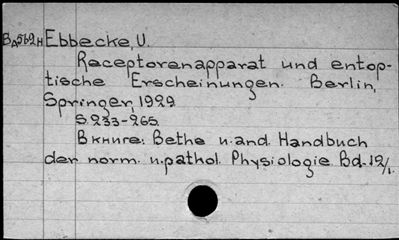 Вд562н Ebbecke, U.
Receptorenapparat und entop-
tische Erscheinungen. Berlin,
Springer, 1929
S. 233-265.
В книге: Bethe u. and. Handbuch
der norm. u. pathol. Physiologie Bd. 12/1.